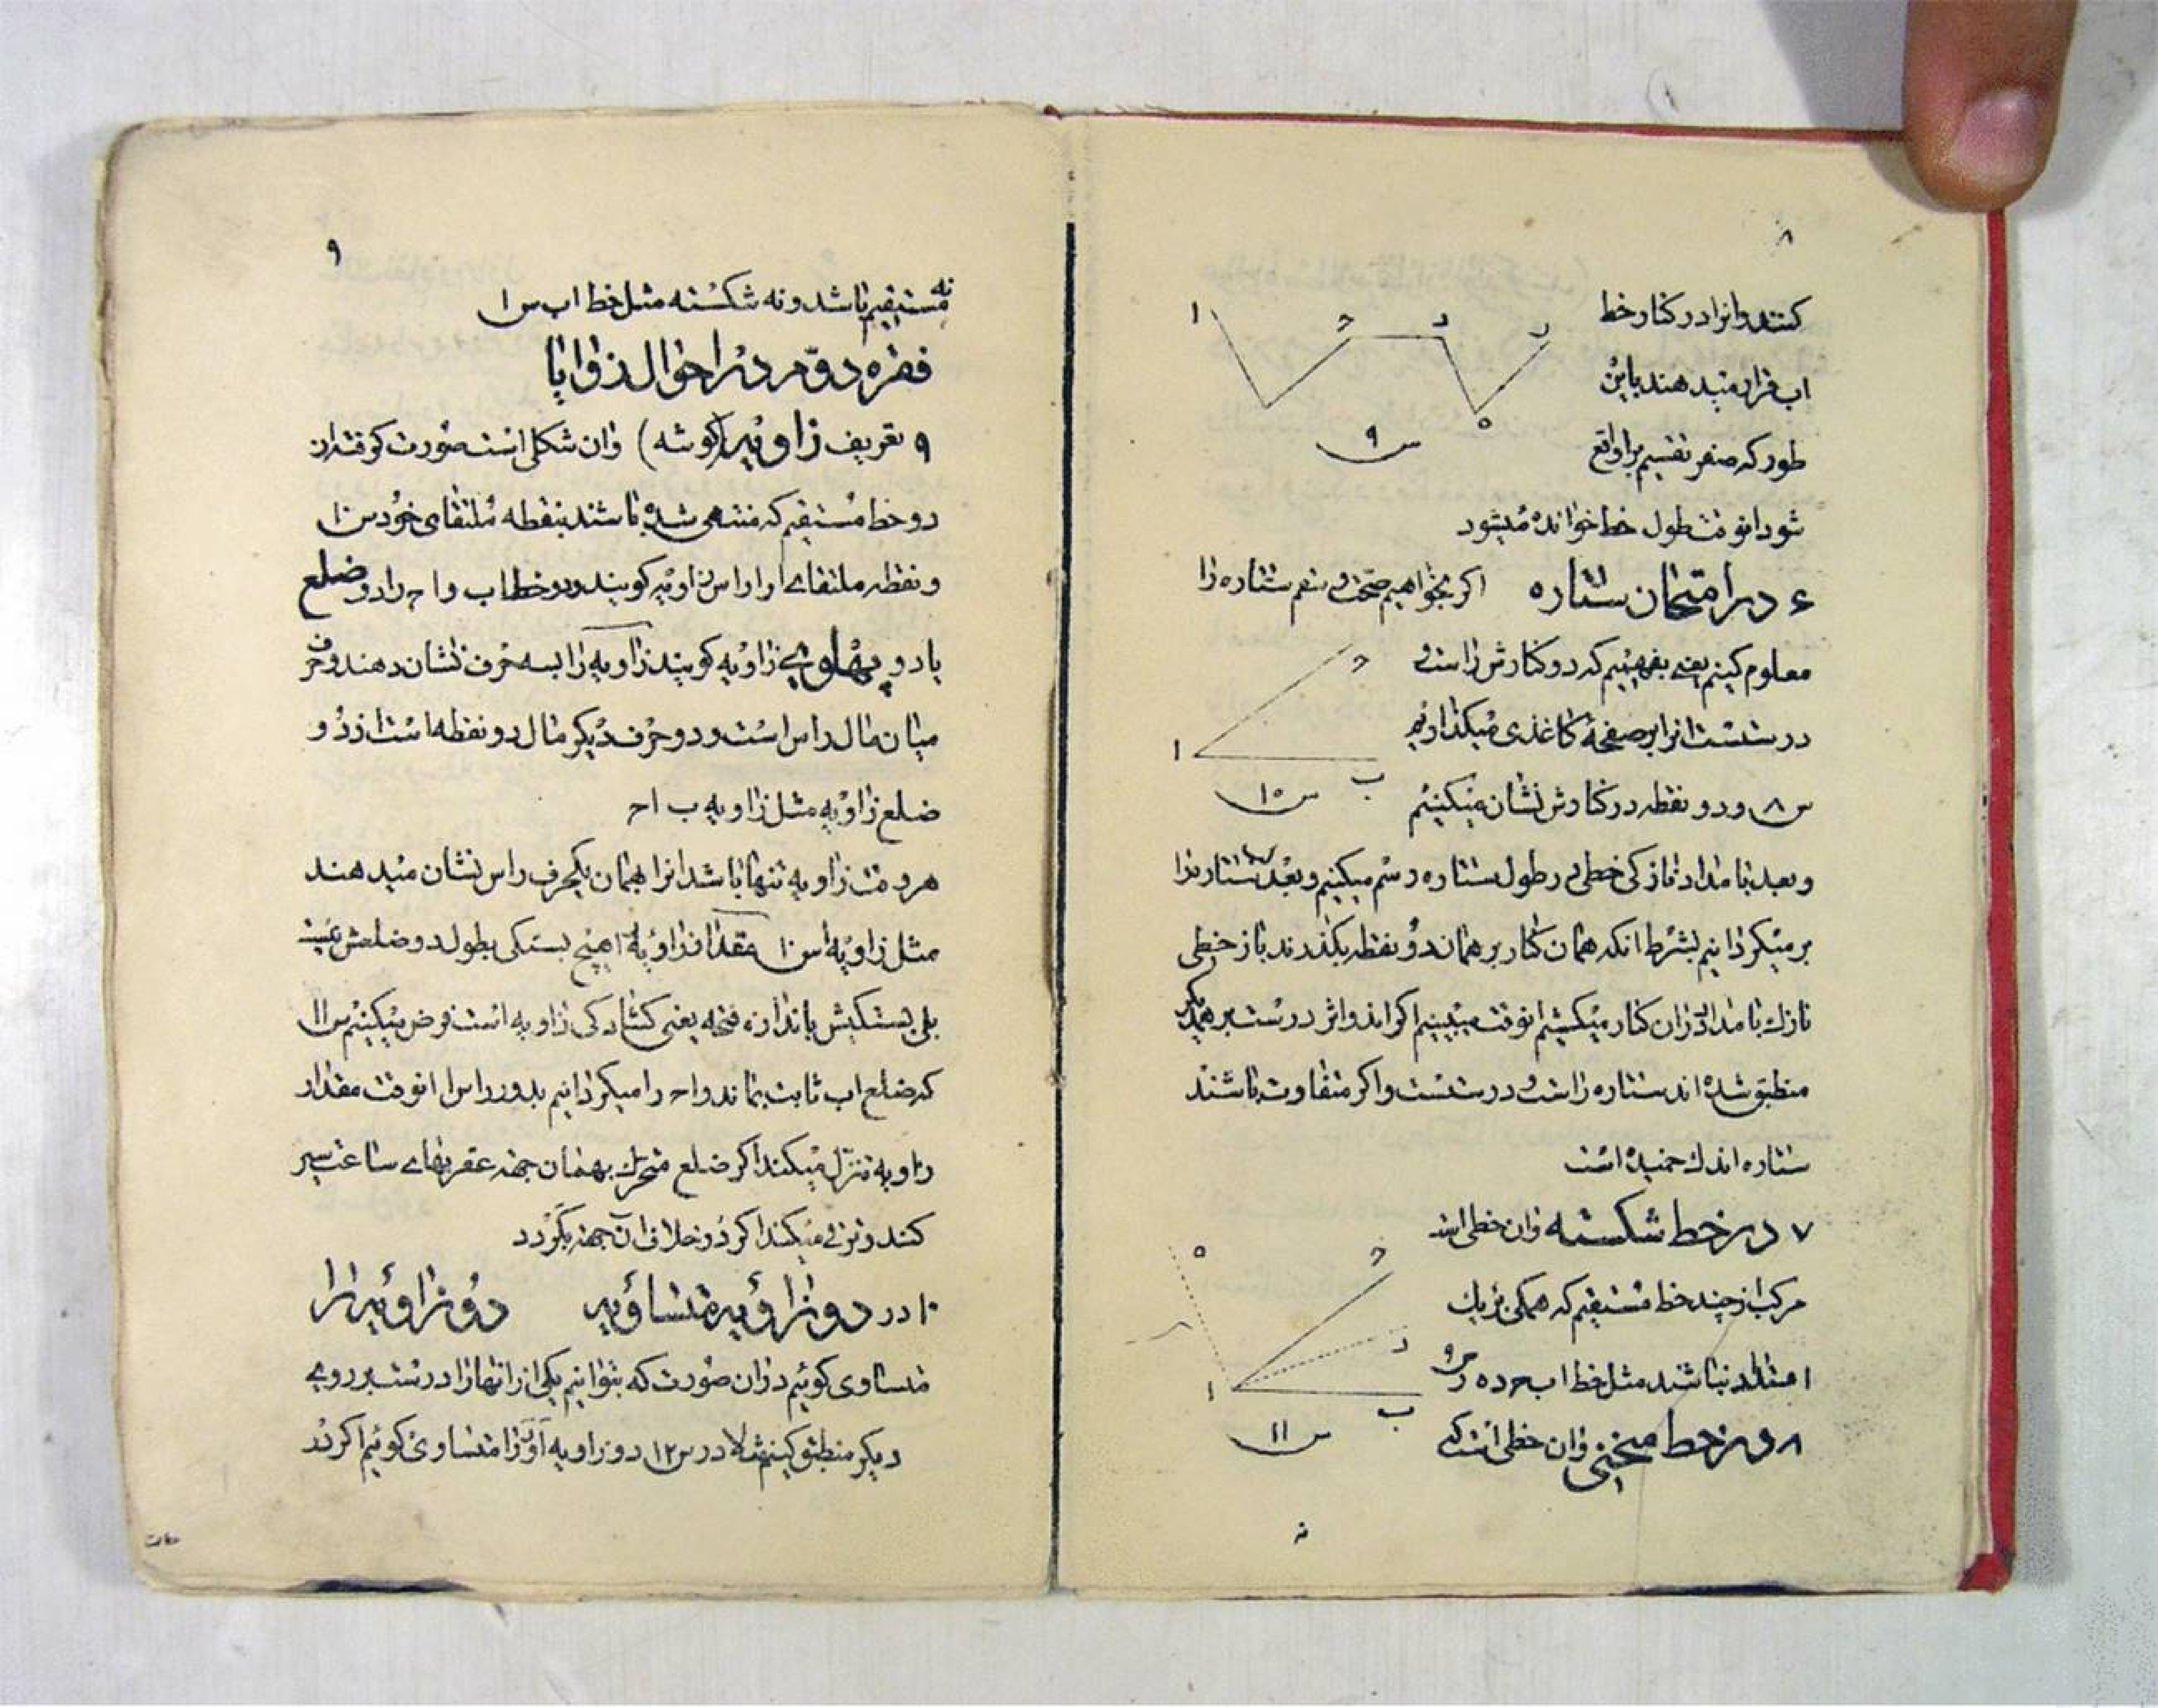 ۸
کنند وانرا در کنار خط
اب قرار میدهند باین
طور که صفر تقسیم برا واقع
شود انوقت طول خط خوانده میشود
۶ در امتحان ستاره اکر بخواهیم صحت و سقم ستاره را
معلوم کنیم یعنی بفهمیم که دو کنارش راست و
درستست انرا بر صفحۀ کاغذی میکذاریم
س ۸ و دو نقطه در کنارش نشان میکنیم
و بعد با مداد نازکی خطی در طول ستاره رسم میکنیم و بعد ستاره را
برمیکردانیم بشرط انکه همان کنار بر همان دو نقطه بکذرد باز خطی
نازک با مداد دران کنار میکشیم انوقت میبینیم اکر اندو اثر درست بر همدیکر
منطبق شده اند ستاره راست و درستست واکر متفاوت باشند
ستاره اندک خمیده است
۷ در خط شکسته وان خطی است
مرکب از چند خط مستقیم که همکی بر یک
امتداد نباشند مثل خط اب ح د ه ر س ۹
۸ در خط منحنی وان خطی است که
ا
ح
د
ر
ه
س ۹
ح
ا
ب
س ۱۰
ه
ح
د
ا
ب
س ۱۱
نه
۹
نه مستقیم باشد و نه شکسته مثل خط اب س ۱
فقره دوم در احوال زوایا
۹ تعریف زاویه (کوشه) وان شکلی است صورت کرفته از
دو خط مستقیم که منتهی شده باشند بنقطه ملتقای خود س ۱۰
و نقطه ملتقای ا را راس زاویه کویند و دو خط اب و اح را دو ضلع
یا دو پهلوی زاویه کویند زاویه را بسه حرف نشان دهند و حرف
میان مال راس است و دو حرف دیکر مال دو نقطه است از دو
ضلع زاویه مثل زاویه ب اح
هروقت زاویه تنها باشد انرا بهمان یکحرف راس نشان میدهند
مثل زاویه ا س ۱۰ مقدار زاویه ا هیچ بستکی بطول دو ضلعش نیست
بلی بستکیش باندازه فتحه یعنی کشادکی زاویه است فرض میکنیم س ۱۱
که ضلع اب ثابت بماند و اح را میکردانیم بدور راس ا انوقت مقدار
زاویه تنزل میکند اکر ضلع متحرک بهمان جهة عقربهای ساعت سیر
کند و ترقی میکند اکر در خلاف ان جهة بکردد
۱۰ در دو زاویه متساویه دو زاویه را
متساوی کوئیم دران صورت که بتوانیم یکی از انها را درست بر روی
دیکر منطبق کنیم مثلا در س ۱۲ دو زاویه ا و ر را متساوی کوئیم اکر زد